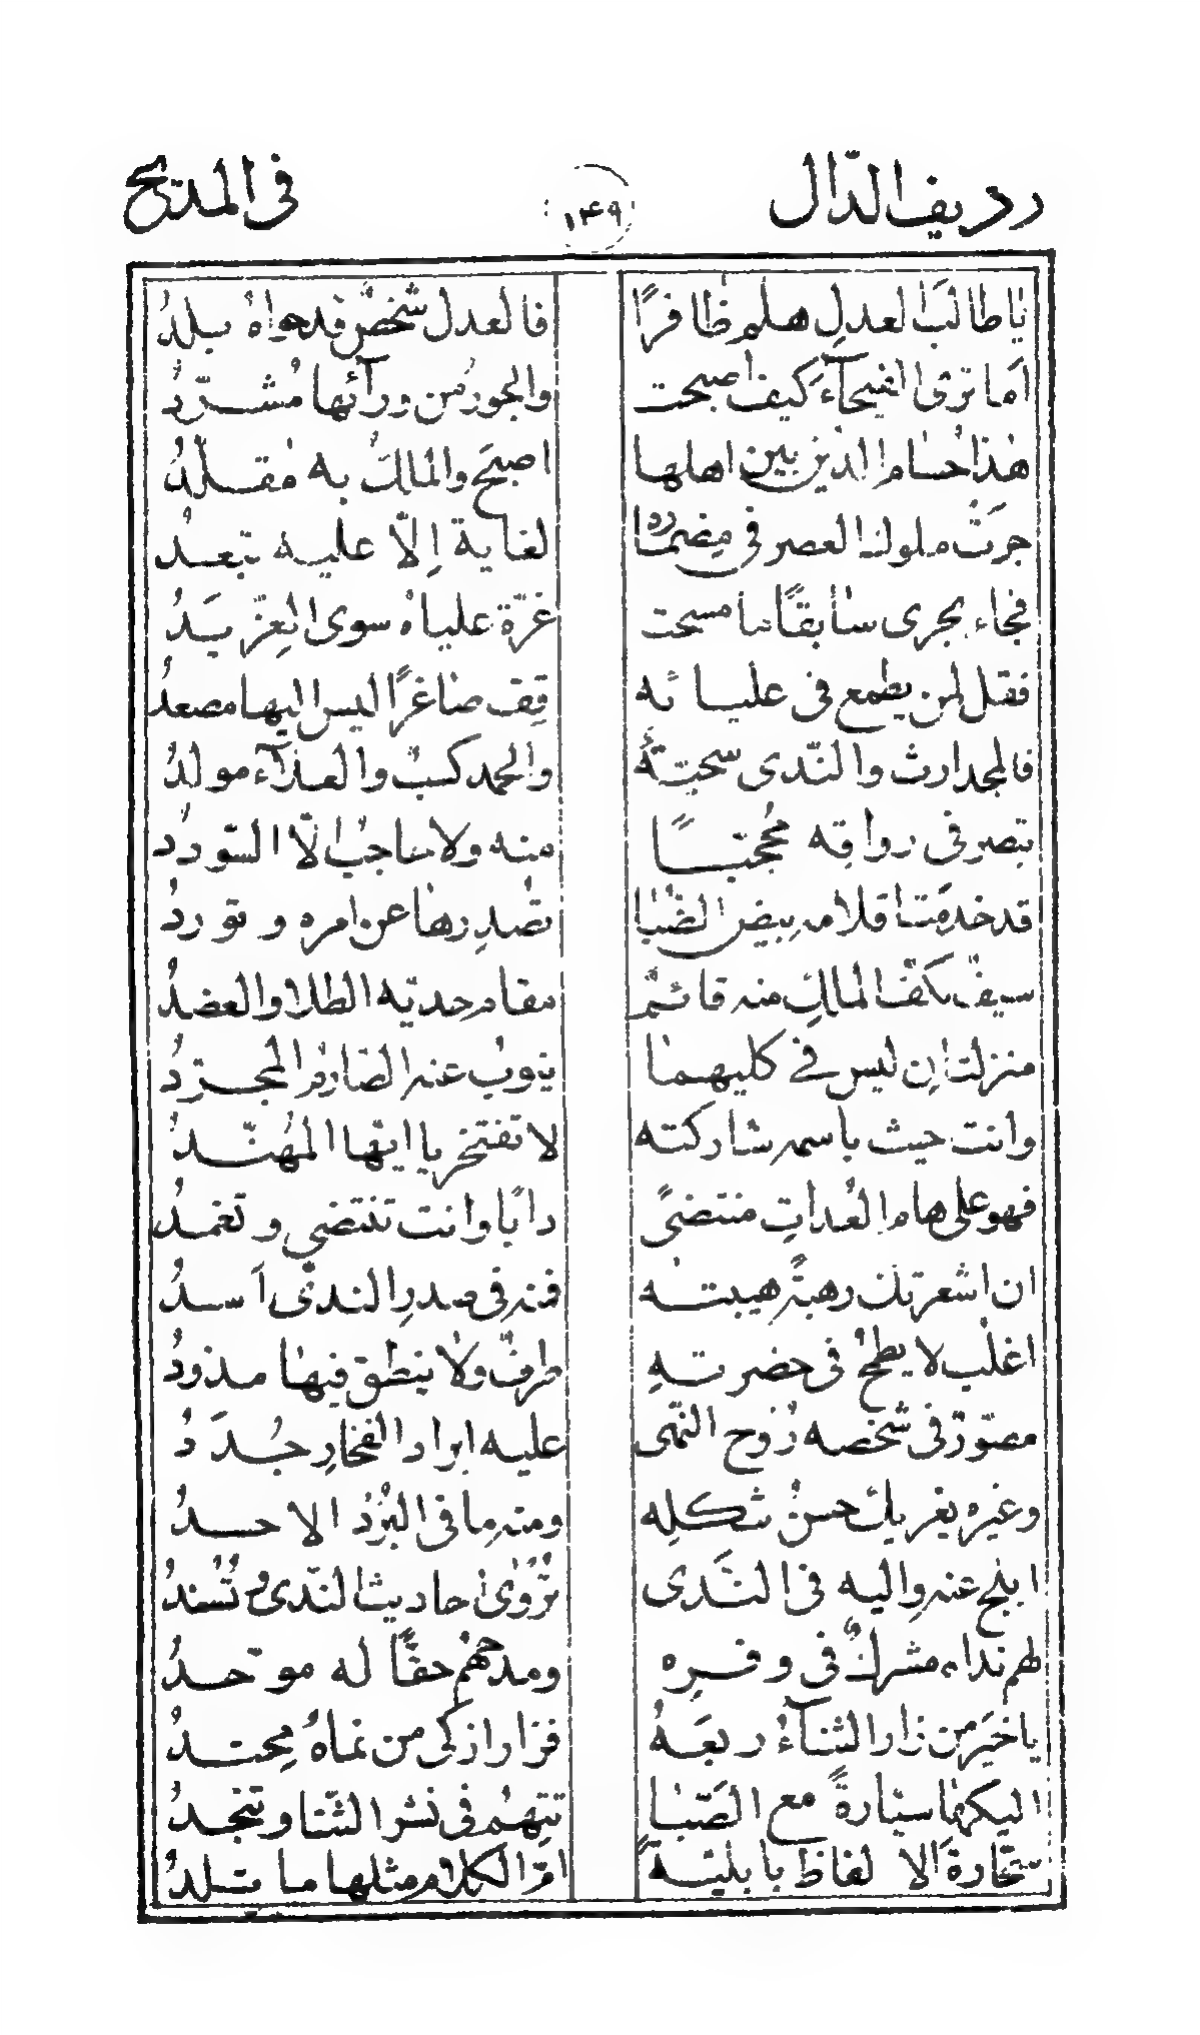 رديف الدّال ١٤٩ فى المديح
يا طالب العدلِ هلم ظافرًا فالعدل شخصٌ قد حواهُ بلدُ
اما ترى الفيحآءَ كيف اصبحت والجور من ورآئها مُشرّدُ
هذا حسام الدين بين اهلها اصبحَ والملك به مقلّدُ
جرَت ملوك العصر فى مِضماره لغاية إلّا عليه تبعدُ
فجاء يجرى سابقًا ما مسحت غرّة علياه سوى العِزّ يَدُ
فقل لمن يطمع فى عليائه قِف صاغرًا ليس اليها مصعدُ
فالمجد ارث والنّدى سجيّةٌ والحمد كسبٌ والعلآء مولدُ
تبصر فى رواقِه مُحجّبًا منه ولا حاجب الّا السّوددُ
قد خدمت اقلامه بيض الظبا تصدِرها عن امره و توردُ
سيفٌ بكفّ الملكِ منه قائمٌ مقام حديّه الطلا والعضدُ
منزلة ان ليس فى كليهما ينوب عنه الصارم المجرّدُ
وانت حيث باسمه شاركته لا تفتخر يا ايّها المُهنّدُ
فهو على هام العُداتِ منتضىً دابًا وانت تنتضى و تغمدُ
ان اشعرتك رهبةً هيبته فمنه فى صدرِ الندىّ اَسدُ
اغلب لا يطمح فى حضرتهِ طرفٌ ولا ينطق فيها مذودُ
مصوّر فى شخصه رُوح النّهى عليه ابراد الفخارِ جُدَدُ
وغيره يغريك حسنُ شكلِه ومنه ما فى البُرْدُ الا جسدُ
ابلج عنه واليه فى النَدى تُرْوىٰ احاديث النّدى و تُسندُ
لهم نداه مشركٌ فى وفرِه ومدحهم حقًّا له موحدُ
يا خيرَ من زار الثنآءُ ربعَهُ فزار ازكى من نماهُ مِحتدُ
اليكها سيّارةً مع الصَبا تتهِم فى نشر الثّنا و تنجدُ
سحّارة الالفاظ بابليّةً امّ الكلام مثلها ما تلدُ